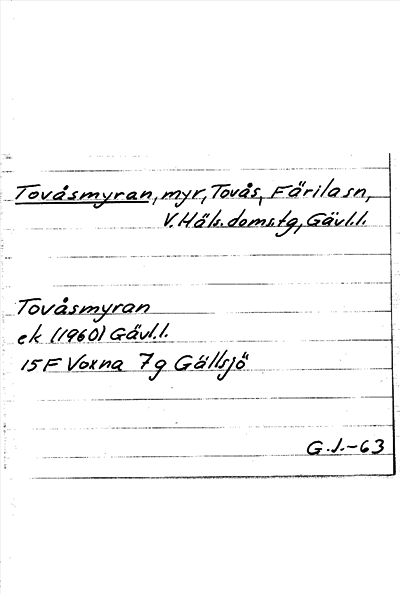 Tovåsmyran, myr, Tovås, Färila sn,
V. Häls. doms.tg, Gävl.l.
Tovåsmyran
ek (1960) Gävl.l.
15 F Voxna 7g Gällsjö
G.J.-63